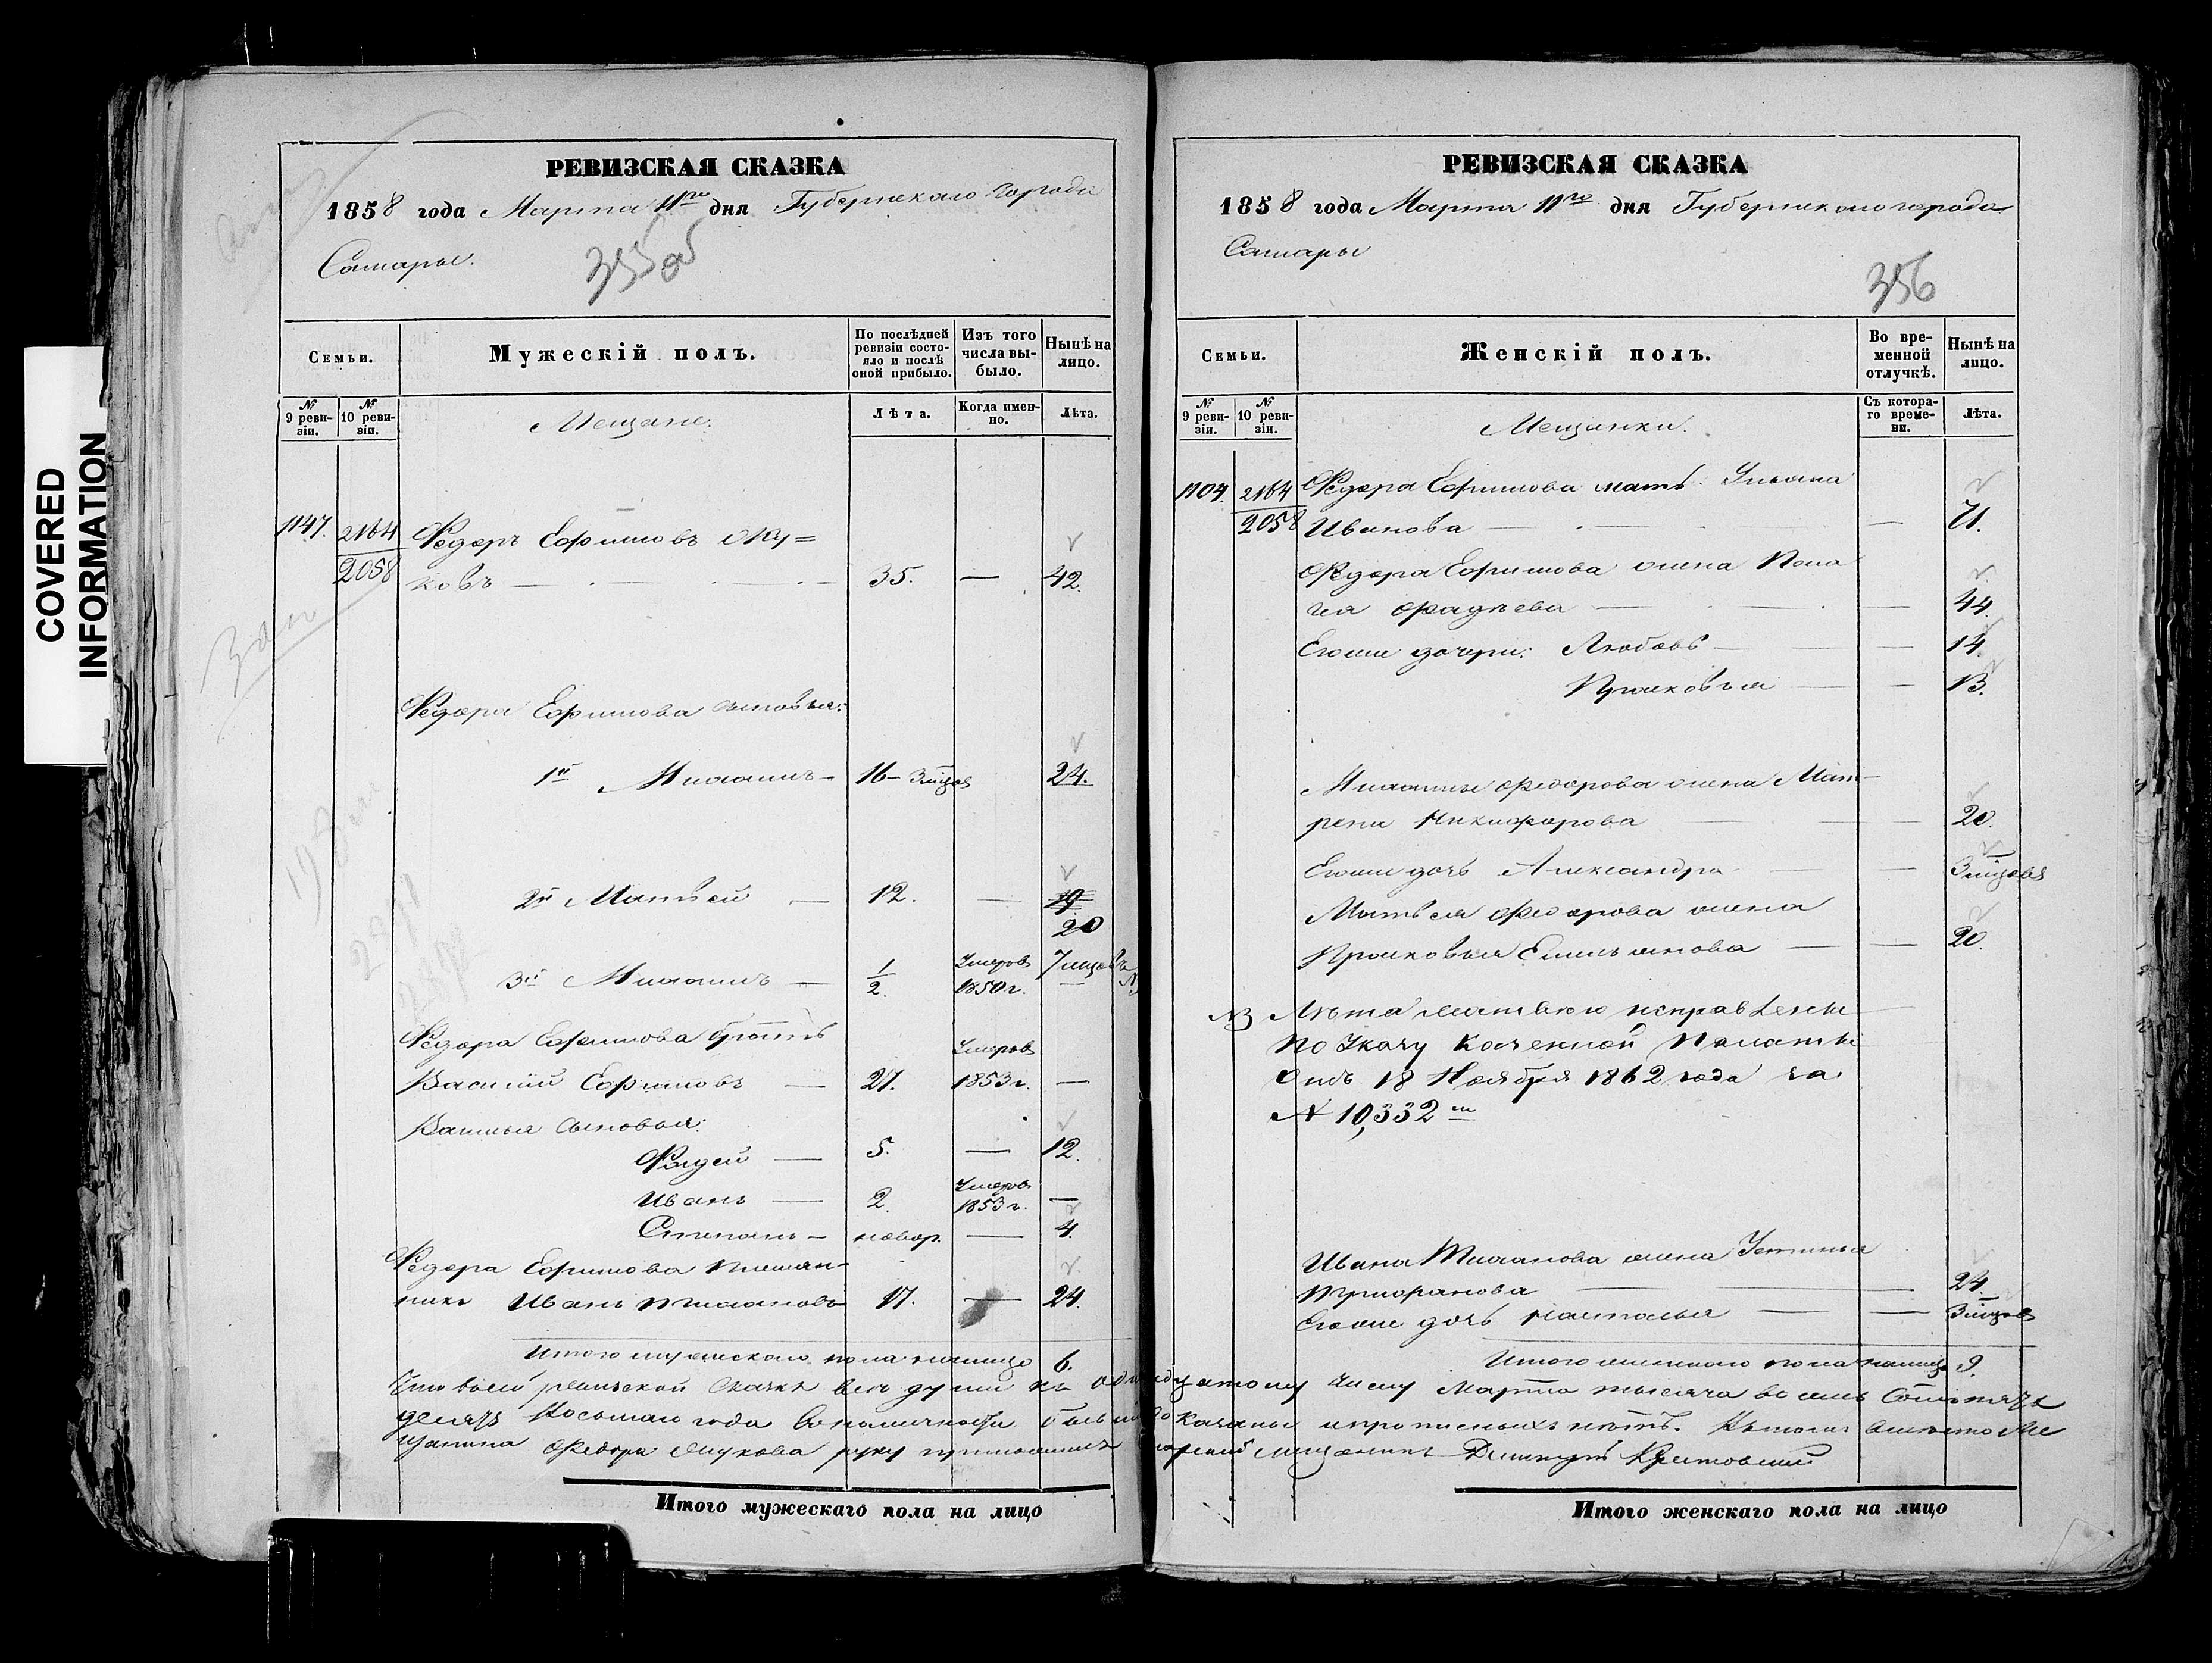 COVERED
INFORMATION
РЕВИЗСКАЯ СКАЗКА
1858 года Марта 11го дня Губернскаго города
Самары.
355об
Семьи.
Мужескій полъ.
По послѣдней ревизіи состо-
яло и послѣ
оной прибыло.
Изъ того
числа вы-
было.
Нынѣ на
лицо.
№ 9 реви-
зіи.
№ 10 реви-
зіи.
Мещане:
Лѣта.
Когда имен-
но.
Лѣта.
1147. 2164 Федоръ Ефимовъ
2058 ковъ — 35. — 42.
Федора Ефимова сыновья:
1й — 16 — 3 мѣцов 24.
2й Матвей — 12. — 19
20
3й — 1/2. Умеръ 1850 г. — 7 мцовъ
Федора Ефимова братъ
Василій Ефимовъ — 27. Умеръ 1853 г. —
Василья сыновья:
Фадей — 5. — 12.
Иванъ — 2. Умеръ 1853 г. —
Степанъ — новор. — 4.
Федора Ефимова племян-
никъ Иванъ — 17. — 24.
Итого мужескаго пола налицо 6.
Итого мужескаго пола на лицо
РЕВИЗСКАЯ СКАЗКА
1858 года Марта 11го дня Губернскаго города
Самары
356
Семьи.
Женскій полъ.
Во вре-
менной
отлучкѣ.
Нынѣ на
лицо.
№ 9 реви-
зіи.
№ 10 реви-
зіи.
Мещанки.
Съ котора-
го време-
ни.
Лѣта.
1104. 2164 Федора Ефимова мать Ульяна
2058 Иванова — — 71.
Федора Ефимова жена Пела
гея Фадѣева — — 44.
Его же дочери: Любовь — — 14.
Прасковья — — 13.
Федорова жена Мат-
рена Никифорова — — 20.
Его же дочь Александра — — 3 мѣцовъ
Матвея Федорова жена
Прасковья Емельянова — — 20.
NB Лѣта Матвею исправлены
по Указу Казенной Палаты
Отъ 18 Ноября 1862 года за
№ 10,332м
Ивана жена Устинья
Трифонова — — 24.
Его же дочь Наталья — — 3 мѣцов
Итого женскаго пола налицо 9.
Что въ сей ревизской Сказкѣ всѣ души къ одиннадцатому числу Марта тысяча восемь сотъ пятьде
десятъ Восьмаго года въ наличности бывшія показаны и прописныхъ нѣтъ. Къ той вмѣсто Ме
щанина Федора руку приложилъ мещанинъ Дмитрій
Итого женскаго пола на лицо